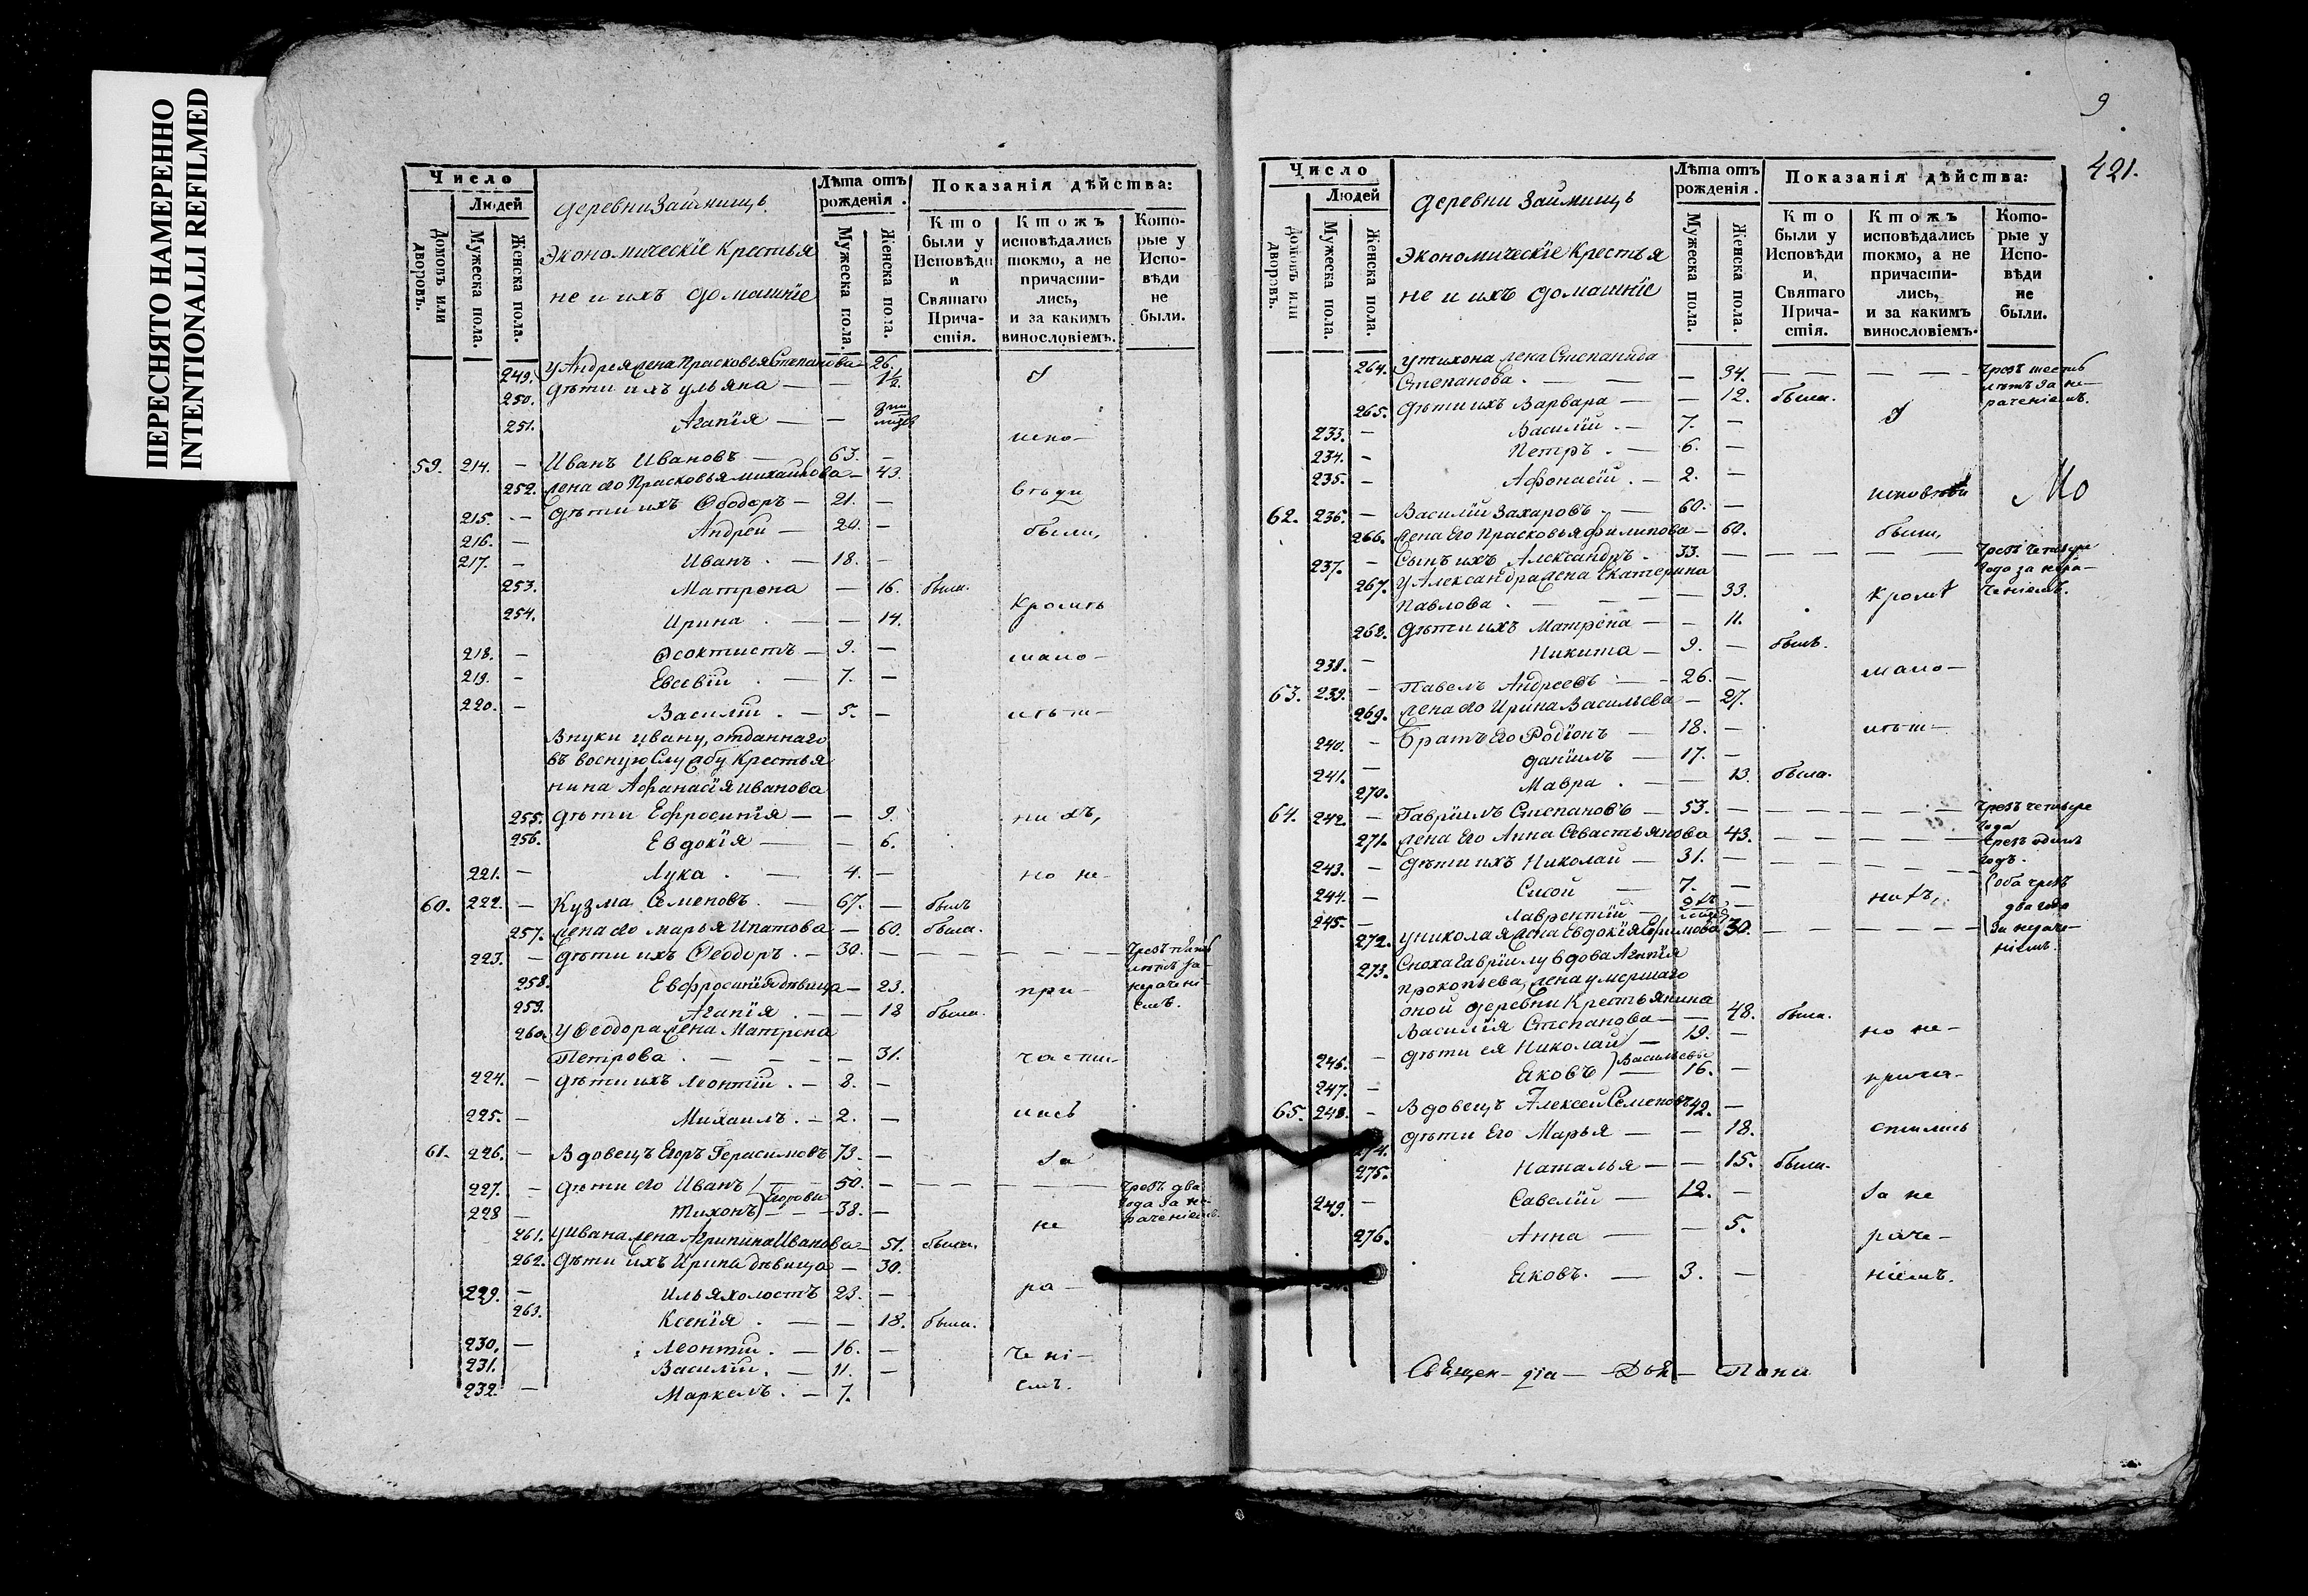 ПЕРЕСНЯТО НАМЕРЕННО
INTENTIONALLI REFILMED
Число
Людей
Домовъ или дворовъ.
Мужеска пола.
Женска пола.
деревни Займищъ
Экономическїе Крестья
не и ихъ домашнїе
Лѣта отъ рожденія.
Мужеска пола.
Женска пола.
Показанія дѣйства:
Кто были у Исповѣди и Святаго Причастія.
Ктожъ исповѣдались токмо, а не причастились, и за какимъ винословіемъ.
Которые у Исповѣди не были.
249. у Андрея жена Прасковья Степанова — 26. И
250. дѣти ихъ ульяна — — 1½.
251. Агапїя — —
испо—
59. 214. — Иванъ Ивановъ — 63. —
252. жена его Прасковья михайлова — 43.
215. — дѣти ихъ Ѳеодоръ — 21. — вѣди
216. — Андрей — 20. — были,
217. — Иванъ. — 18. —
253. Матрена — 16. была.
254. Ирина. — — 14. кромѣ
218. — Ѳеоктистъ — 9. — мало—
219. — Евсевїй. — 7. —
220. — Василїй. — 5. — лѣт—
Внуки ивану, отданнаго
въ военую Службу Крестья
нина Афанасїя иванова
255. дѣти Ефросинїя — — 9. нихъ,
256. Евдокїя — — 6.
221. — Лука. — 4. — но не—
60. 222. — Кузма Семеновъ. — 67. — былъ
257. жена его марья Ипатова — 60. была.
223. — дѣти ихъ Ѳеодоръ. — 30. — — — — — Чрезъ пять лѣтъ за нераченіемъ.
258. Евфросинїя дѣвица — 23. при—
259. Агапїя. — — 18 была.
260. у Ѳеодора жена Матрена
Петрова. — — — — 31. части—
224. — дѣти ихъ Леонтїй. — 8. —
225. — Михаилъ. — 2. — лись
61. 226. — Вдовецъ Егоръ Герасимовъ 73. — За
227. — дѣти его Иванъ } Егоровы — 50. — — — — — Чрезъ два года за нераченіемъ.
228 — Тихонъ } — — 38. — не
261. у Ивана жена Агрипина Иванова — 51. была.
262. дѣти ихъ Ирина дѣвица — 30.
229. — илья холостъ 23. — ра—
263. Ксенїя. — — 18. была.
230. — Леонтїй. — 16. — чені—
231. Василїй. — 11. —
232. — Маркелъ. — 7. емъ.
9
421.
Число
Людей
Домовъ или дворовъ.
Мужеска пола.
Женска пола.
деревни Займищъ
Экономическїе Крестья
не и ихъ домашнїе
Лѣта отъ рожденія.
Мужеска пола.
Женска пола.
Показанія дѣйства:
Кто были у Исповѣди и Святаго Причастія.
Ктожъ исповѣдались токмо, а не причастились, и за какимъ винословіемъ.
Которые у Исповѣди не были.
264. у тихона жена Степанида
Степанова. — — — 34. — — — — — Чрезъ шесть лѣтъ за нераченіемъ.
265. дѣти ихъ Варвара — — 12. была. И
233. — Василїй. — 7. —
234. — Петръ. — 6. —
235. — Афонасїй. — 2. — исповѣди Мо
62. 236. — Василїй Захаровъ. — 60. —
266. жена Его Прасковья филипова — 60. были,
237. — Сынъ ихъ Александръ. — 33. — — — — — Чрезъ четыре года за нераченіемъ.
267. у Александра жена Екатерина
Павлова. — — — — 33. кромѣ
262. дѣти ихъ Матрена — — 11.
238. — Никита — 9. — былъ.
мало—
63. 239. — Павелъ Андреевъ — 26. —
269. жена его Ирина Васильева — 27.
240. — Братъ Его Родїонъ — 18. — лѣт—
241. — данїилъ — 17. —
270. Мавра. — — 13. была.
64. 242. — Гаврїилъ Степановъ — 53. — — — — — Чрезъ четыре года
271. жена Его Анна Севастьянова 43. — — — — чрезъ одинъ годъ.
243. — дѣти ихъ Николай — 31. — — — — —
244. — Сисой — 7. — нихъ, { оба чрезъ два года
245. — Лаврентїй —
272. у николая жена Евдокїя Ефимова 30. — — — — — { за нераченіемъ.
273. Сноха Гаврїилу вдова Агапїя
прокопьева, жена умершаго
оной деревни Крестьянина
Василїя Степанова — — 48. была.
246. — дѣти ея Николай } Васильевы — 19. — но не—
247. — Яковъ } — 16. — прича—
65. 248. — Вдовецъ Алексей Семеновъ 42. —
274. дѣти Его Марья — — 18. стились
275. Наталья — — 15. была.
249. — Савелїй — 12. — За не
276. Анна — — 5. раче—
Яковъ. — 3. — ніемъ.
Священ— дїа— Дья— Пона